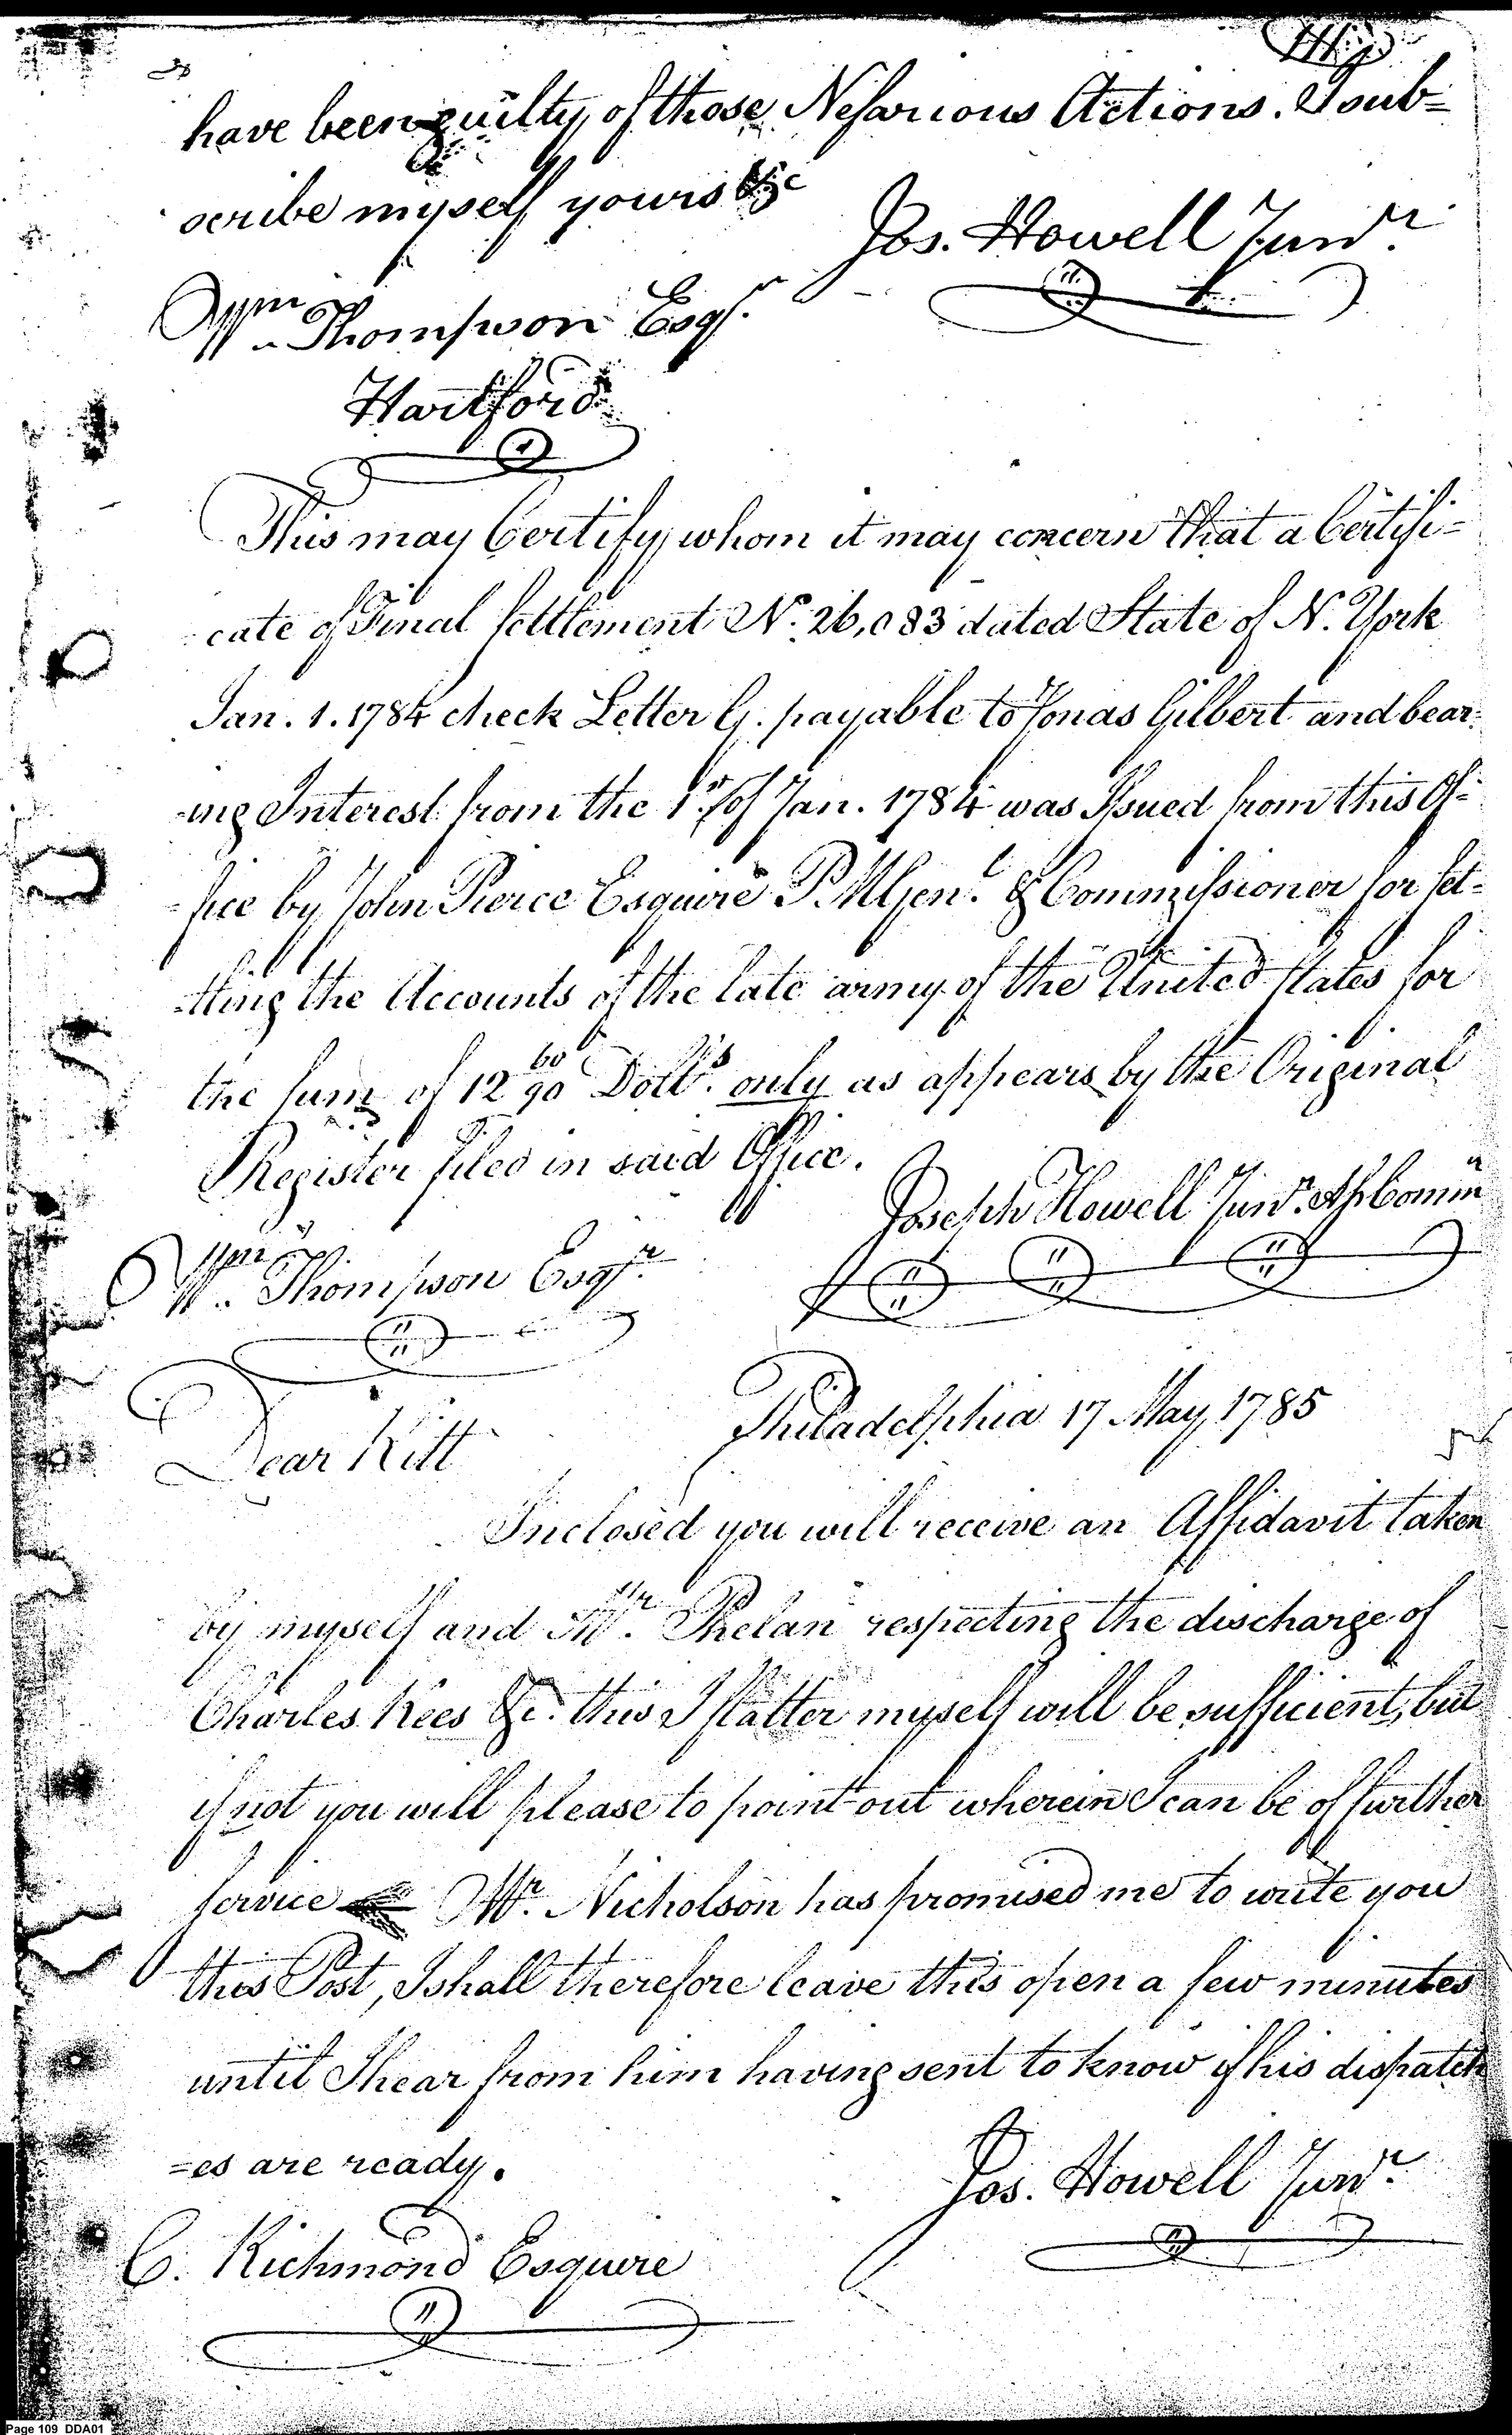 have been guilty of those Nefarious Actions. I sub=
scribe myself yours &c
Jos. Howell Junr.
Wm Thompson Esqr.
Hartford
This may Certify whom it may concern that a Certifi=
cate of Final Settlement No. 26,083 dated State of N. York
Jan. 1. 1784 check Letter G. payable to Jonas Gilbert and bear-
-ing Interest from the 1st of Jan. 1784 was Issued from this Of=
-fice by John Pierce Esquire P.M Genl. & Commissioner for set-
-tling the Accounts of the late army of the United States for
the sum of 12 60/90 Dolls. only as appears by the Original
Register filed in said Office.
Joseph Howell Junr. Ast Commr
Wm Thompson Esqr.
Philadelphia 17 May 1785
Dear Kitt
Inclosed you will receive an Affidavit taken
by myself and Mr. Phelan respecting the discharge of
Charles Kees &c. this I flatter myself will be sufficient, but
if not you will please to point out wherein I can be of further
service Mr. Nicholson has promised me to write you
this Post, I shall therefore leave this open a few minutes
until I hear from him having sent to know if his dispatch
=es are ready.
Jos. Howell Junr.
C. Richmond Esquire
Page 109 DDA01